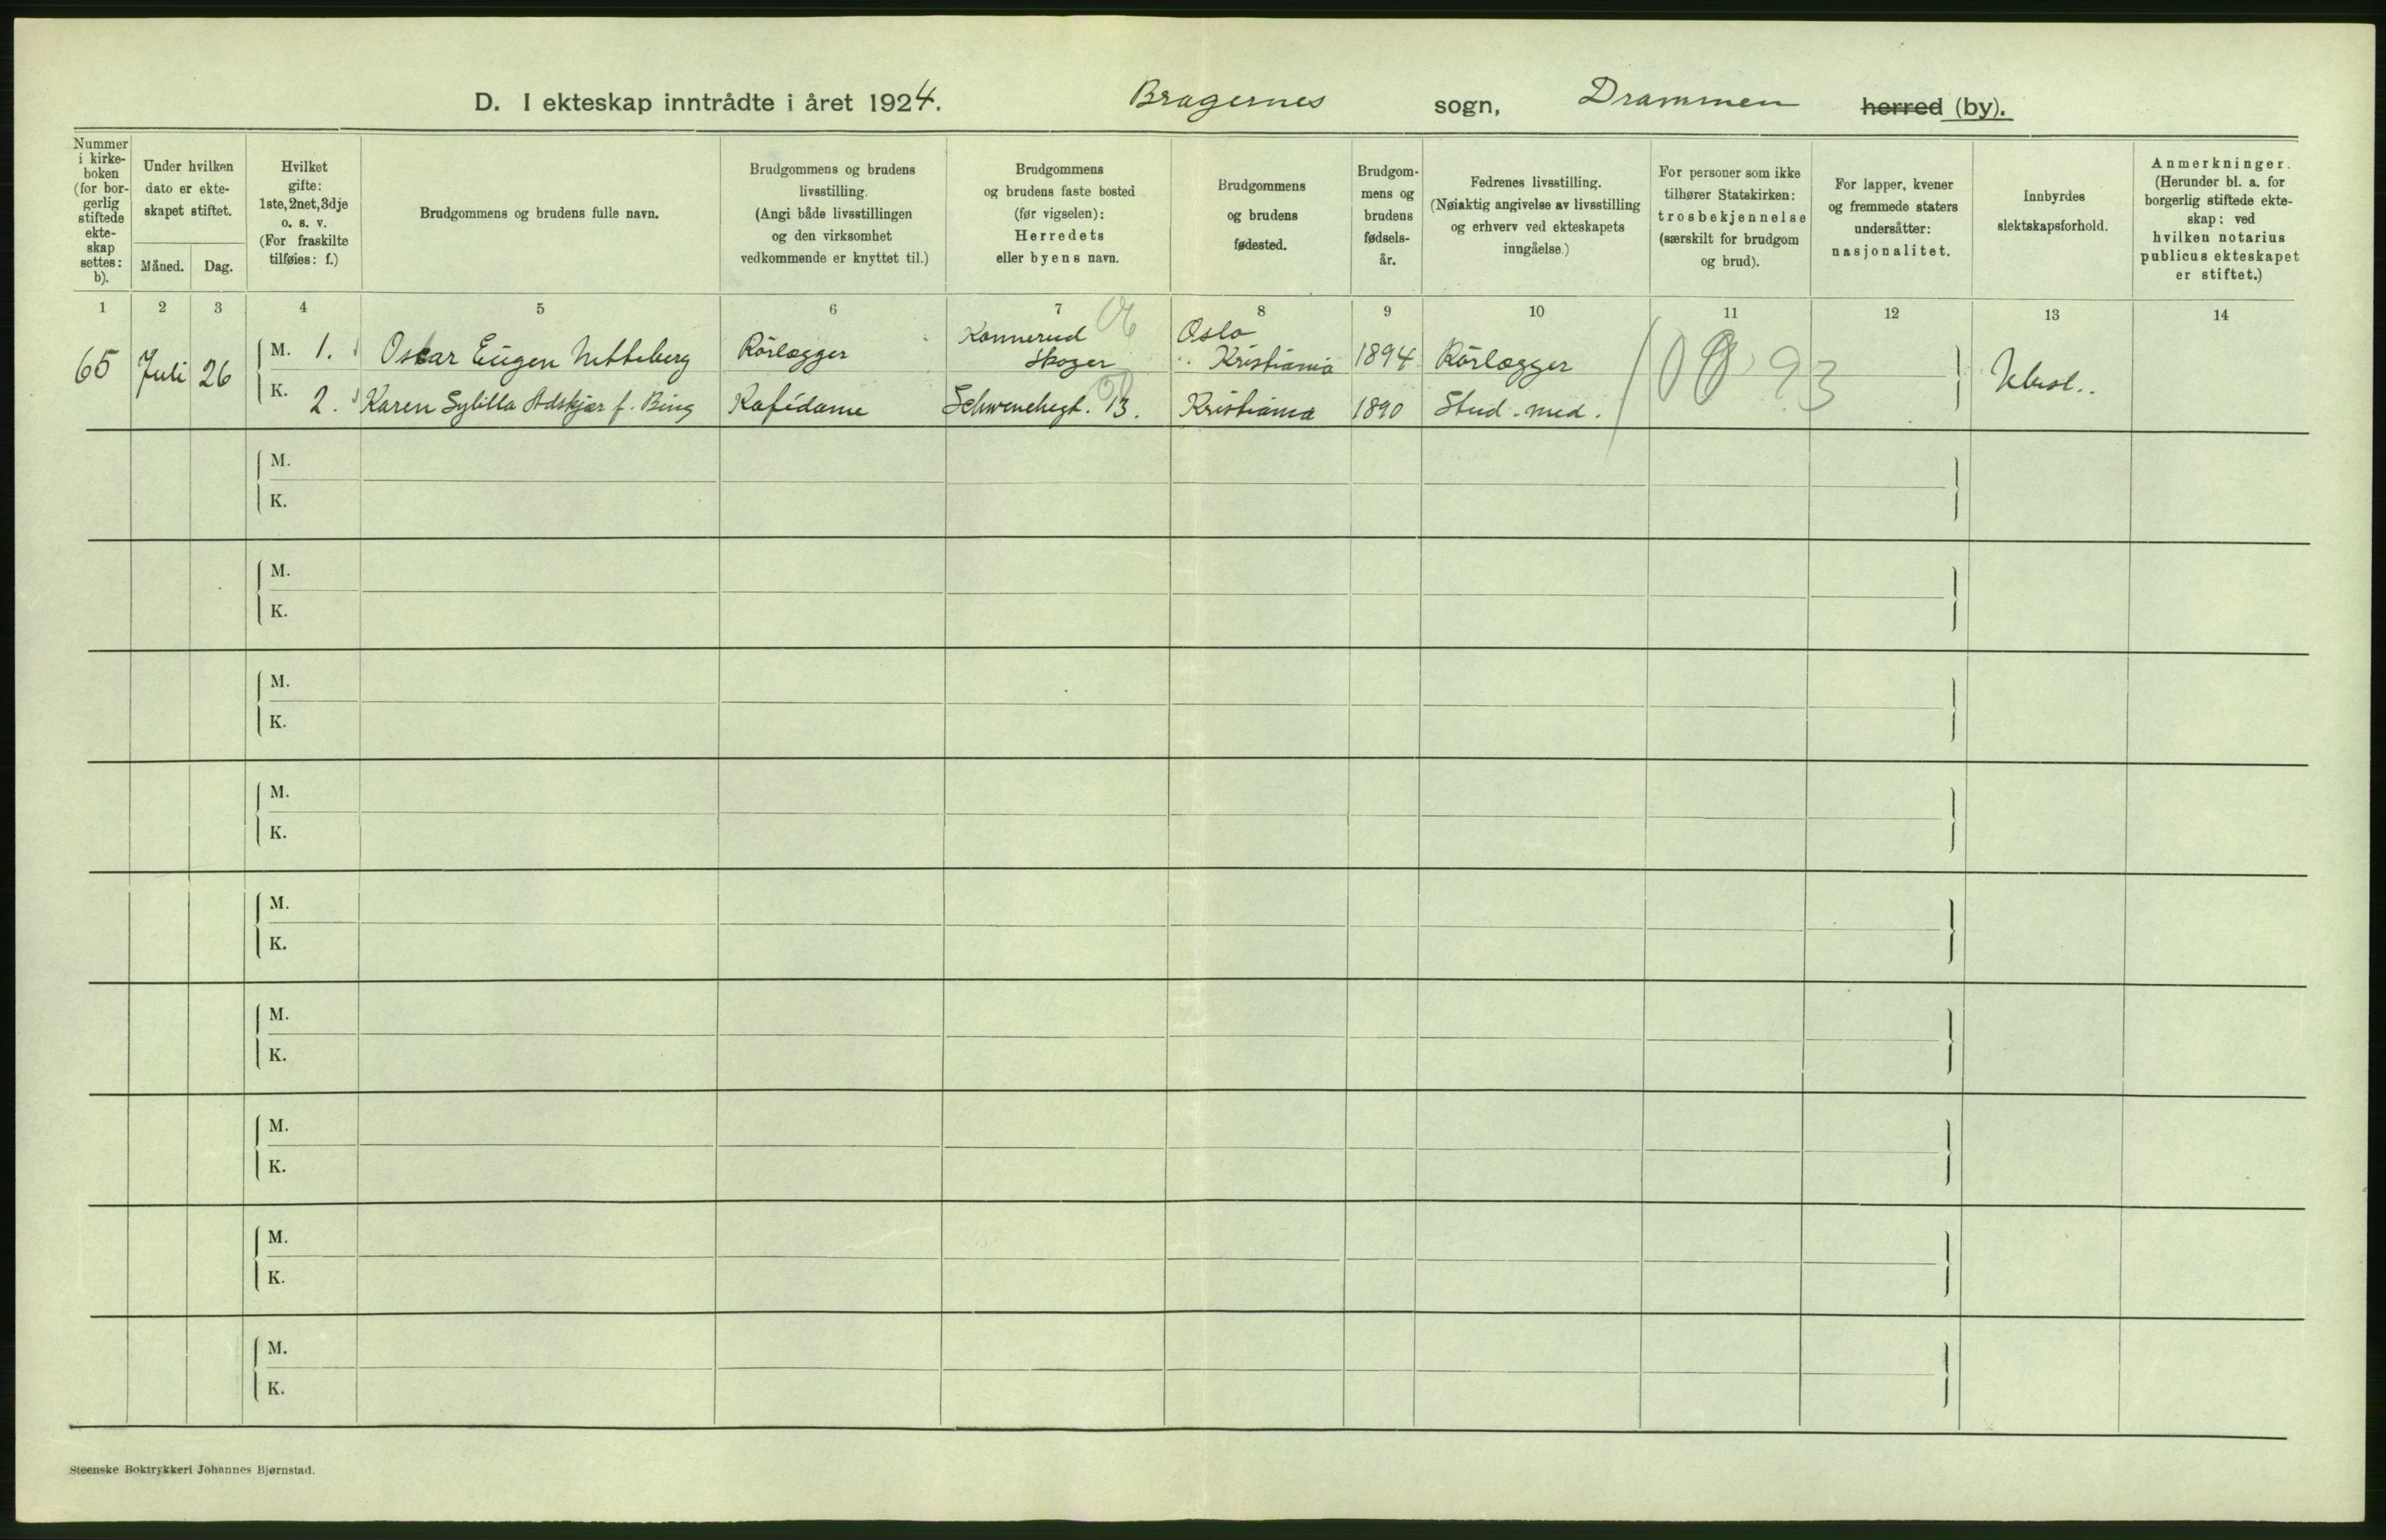 D. I ekteskap inntrådte i året 1924. Bragernes sogn, Drammen herred (by).
Nummer
i kirke-
boken
(for bor-
gerlig
stiftede
ekte-
skap
settes:
b).
Under hvilken
dato er ekte-
skapet stiftet.
Måned. Dag.
Hvilket
gifte:
1ste, 2net, 3dje
o. s. v.
(For fraskilte
tilføies: f.)
Brudgommens og brudens fulle navn.
Brudgommens og brudens
livsstilling.
(Angi både livsstillingen
og den virksomhet
vedkommende er knyttet til.)
Brudgommens
og brudens faste bosted
(før vigselen):
Herredets
eller byens navn.
Brudgommens
og brudens
fødested.
Brudgom-
mens og
brudens
fødsels-
år.
Fedrenes livsstilling.
(Nøiaktig angivelse av livsstilling
og erhverv ved ekteskapets
inngåelse.)
For personer som ikke
tilhører Statskirken:
trosbekjennelse
(særskilt for brudgom
og brud).
For lapper, kvener
og fremmede staters
undersåtter:
nasjonalitet.
Innbyrdes
slektskapsforhold.
Anmerkninger.
(Herunder bl. a. for
borgerlig stiftede ekte-
skap: ved
hvilken notarius
publicus ekteskapet
er stiftet.)
1 2 3 4 5 6 7 8 9 10 11 12 13 14
65 Juli 26 M. 1. Oscar Eugen Netteberg Rörlægger Konnerud Skoger Oslo Kristiania 1894 Rörlægger
K. 2. Karen Sybilla Adskjær f. Bing Kafédame Schwenckegt. 13. Kristiania 1890 Stud. med. Ubesl..
M.
K.
M.
K.
M.
K.
M.
K.
M.
K.
M.
K.
M.
K.
M.
K.
M.
K.
Steenske Boktrykkeri Johannes Bjørnstad.